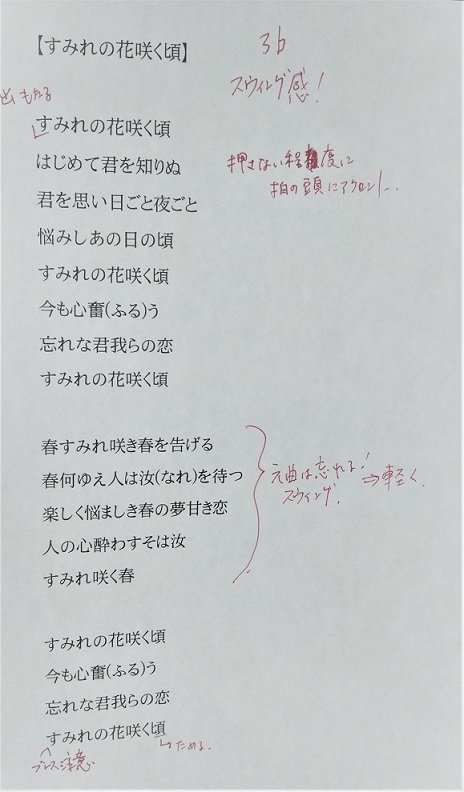 【すみれの花咲く頃】
3b
スウィング感!
出しもたる
すみれの花咲く頃
はじめて君を知りぬ
押さない程度に
拍の頭にアクセント...
君を思い日ごと夜ごと
悩みしあの日の頃
すみれの花咲く頃
今も心奮(ふる)う
忘れな君我らの恋
すみれの花咲く頃
春すみれ咲き春を告げる
春何ゆえ人は汝(なれ)を待つ
楽しく悩ましき春の夢甘き恋
人の心酔わすそは汝
すみれ咲く春
元曲は忘れる!
スウィング.
⇒軽く.
すみれの花咲く頃
今も心奮(ふる)う
忘れな君我らの恋
すみれの花咲く頃
ブレス注意
ためる.